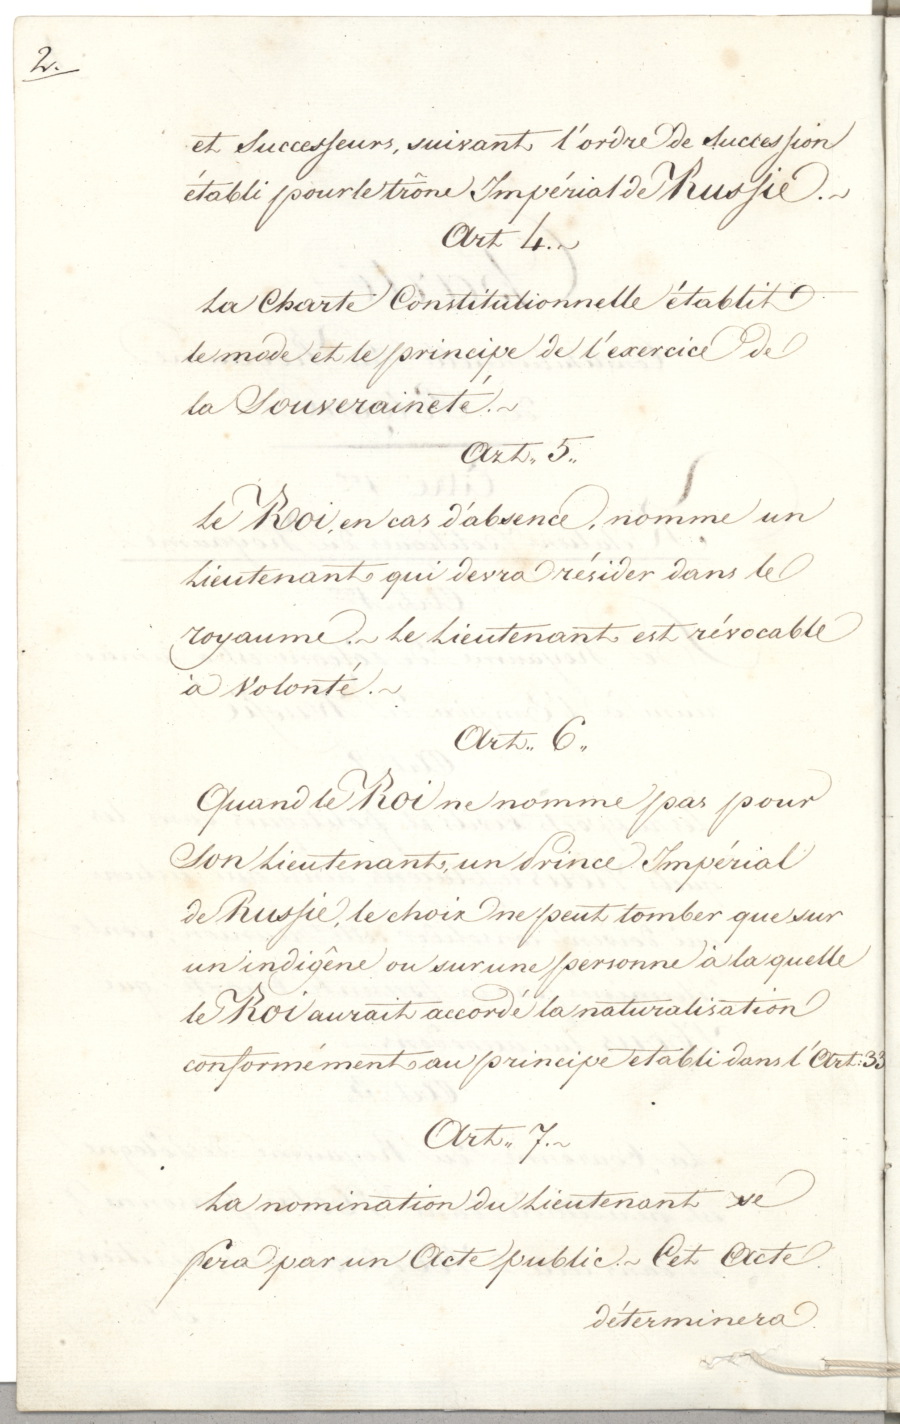 2.
et Successeurs, suivant l'ordre de succession
établi pour le trône Impérial de Russie.~
Art 4.~
La Charte Constitutionnelle établit
le mode et le principe de l'exercice de
la Souveraineté.~
Art. 5.
Le Roi, en cas d'absence, nomme un
Lieutenant qui devra résider dans le
royaume.~ Le Lieutenant est révocable
à Volonté.~
Art. 6.
Quand le Roi ne nomme pas pour
Son Lieutenant, un Prince Impérial
de Russie, le choix ne peut tomber que sur
un indigêne ou sur une personne à la quelle
le Roi aurait accordé la naturalisation
conformément au principe etabli dans l'Art: 33
Art. 7.~
La nomination du Lieutenant se
fera par un Acte public.~ Cet Acte
déterminera